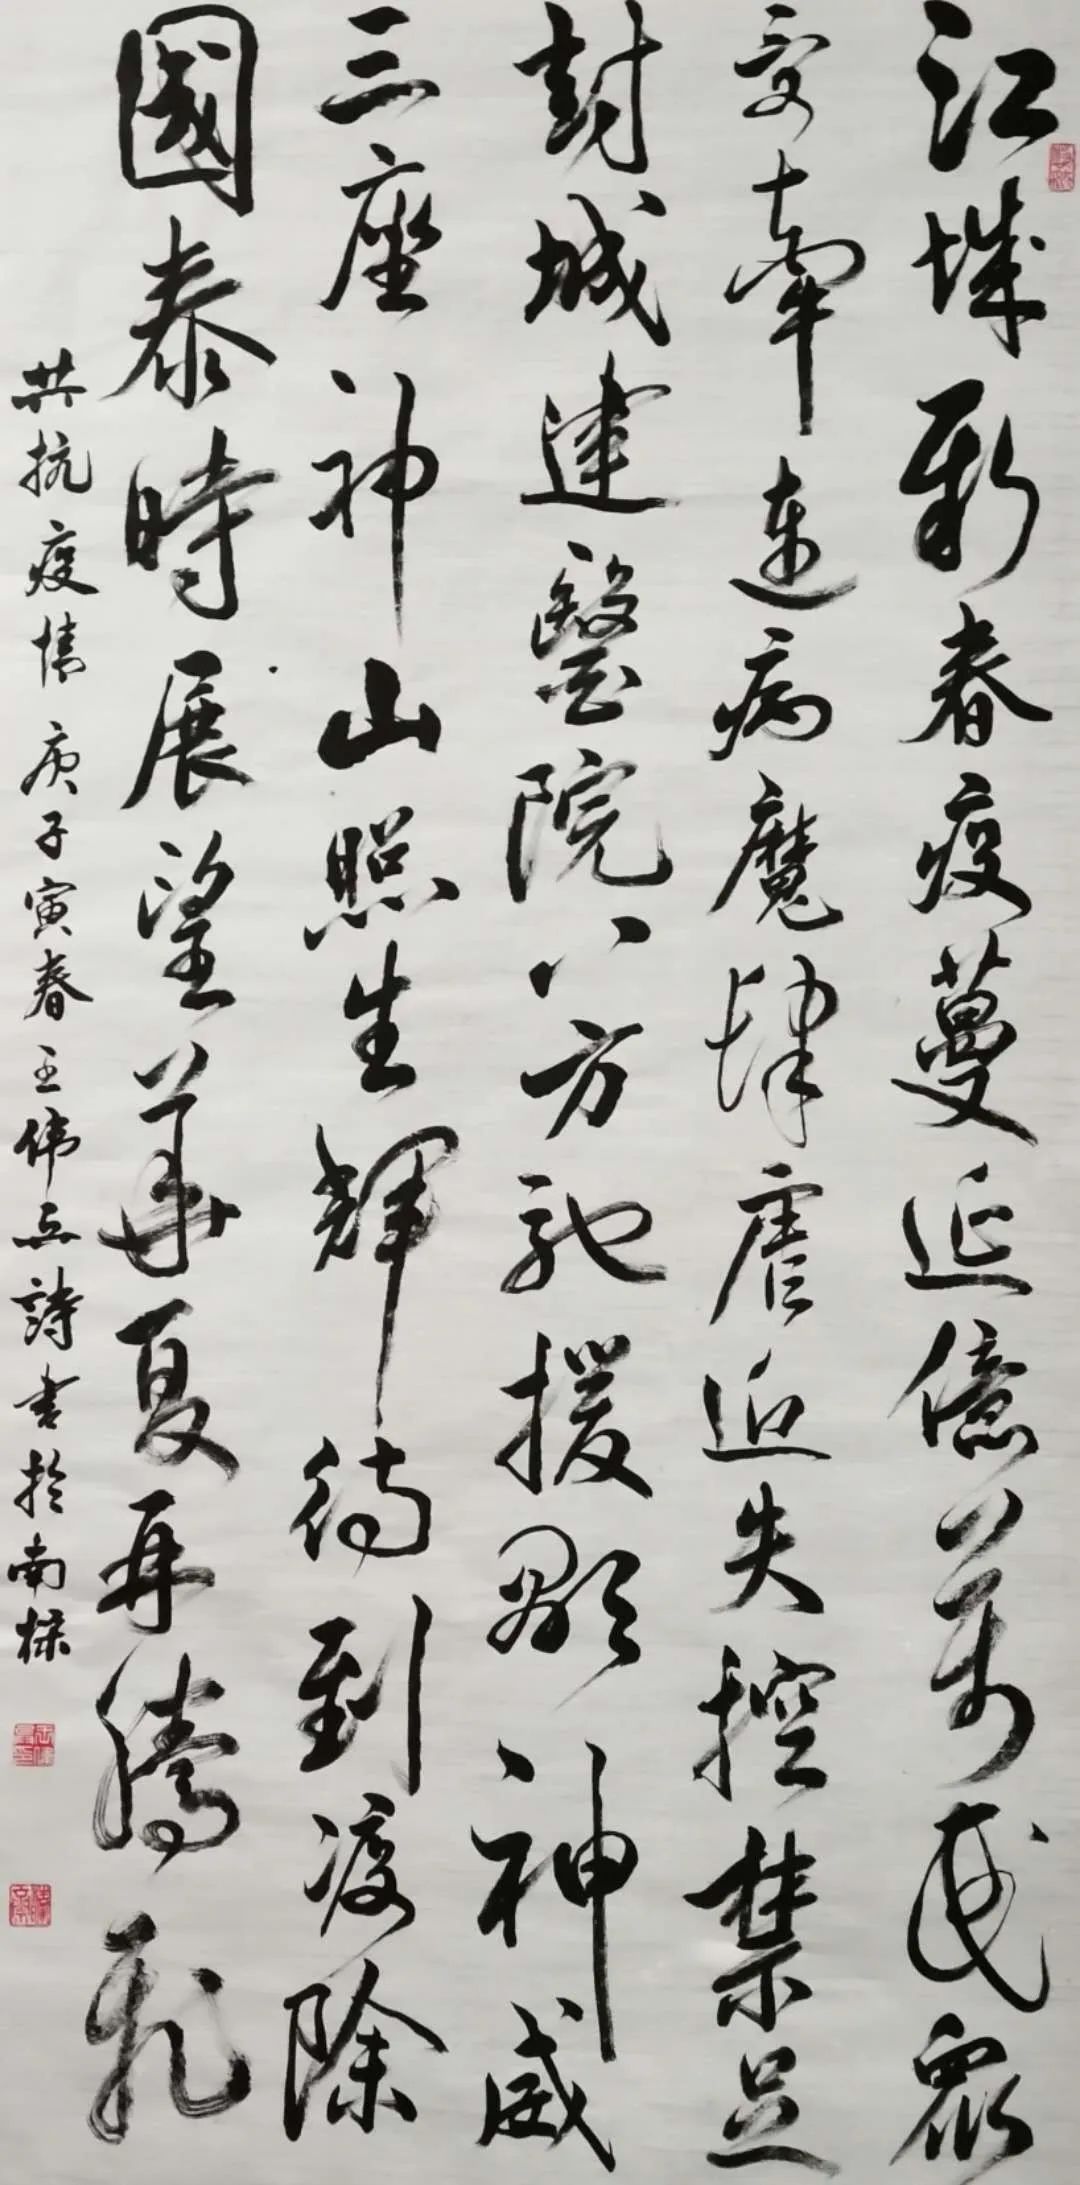 江城新春疫蔓延億萬民眾
受牽連病魔肆虐近失控禁足
封城建醫院八方馳援顯神威
三座神山照生輝待到疫除
國泰時展望華夏再騰飛
共抗疫情 庚子寅春 王偉並詩書於南樑